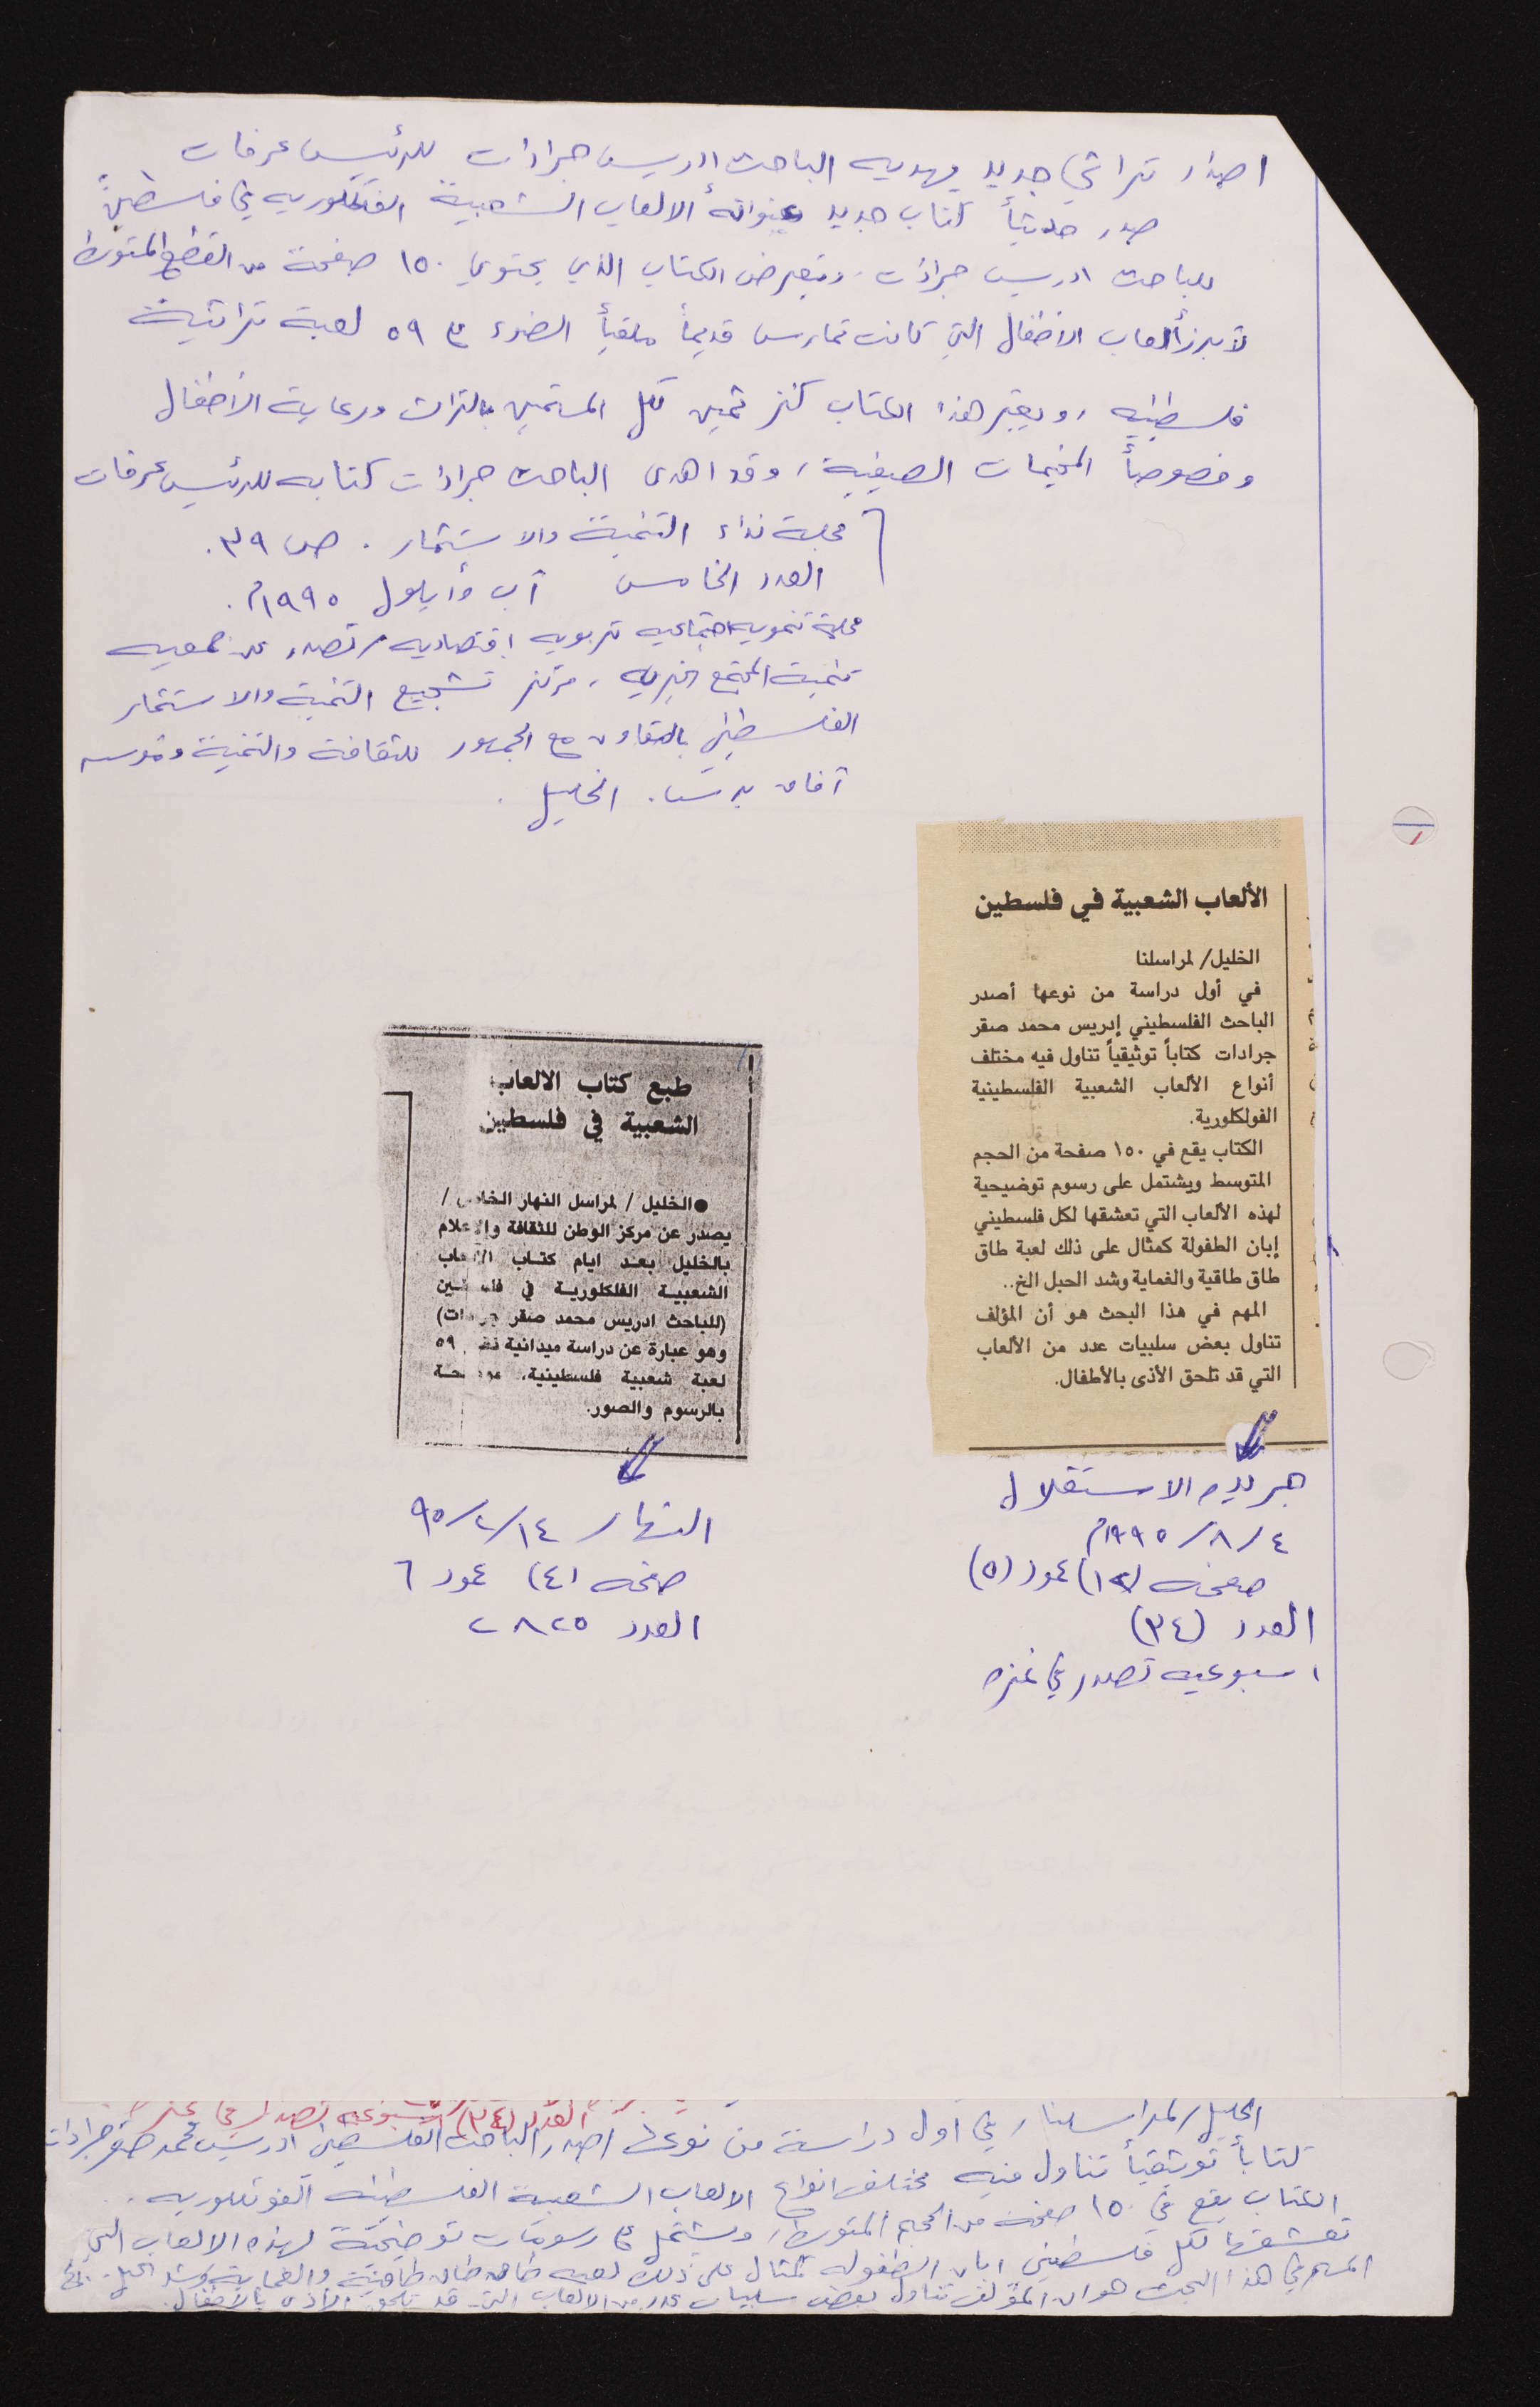 اصدار تراثي جديد يهديه الباحث ادريس جرادات للرئيس عرفات
صدر حديثاً كتاب جديد عنوانه الالعاب الشعبية الفلكلوريه في فلسطين
للباحث ادريس جرادات، ويعرض الكتاب الذي يحتوي ١٥٠ صفحة من القطع المتوسط
لأبرز ألعاب الأطفال التي كانت تمارس قديماً ملقياً الضوء على ٥٩ لعبة تراثية
فلسطينيه، ويعتبر هذا الكتاب كنز ثمين لكل المهتمين بالتراث ورعاية الأطفال
وخصوصاً المخيمات الصيفية، وقد اهدى الباحث جرادات كتابه للرئيس عرفات
مجلة نداء التنمية والاستثمار. ص ٣٩.
العدد الخامس آب وأيلول ١٩٩٥م.
مجلة تنمويه اجتماعيه تربويه اقتصاديه / تصدر عن جمعيه
تنمية المجتمع الخيريه، مركز تشجيع التنمية والاستثمار
الفلسطيني بالتعاون مع الجمهور للثقافة والتنمية ومؤسسه
آفاق برس. الخليل.
الألعاب الشعبية في فلسطين
الخليل/ لمراسلنا
في أول دراسة من نوعها أصدر
الباحث الفلسطيني إدريس محمد صقر
جرادات كتاباً توثيقياً تناول فيه مختلف
أنواع الألعاب الشعبية الفلسطينية
الفولكلورية.
الكتاب يقع في ١٥٠ صفحة من الحجم
المتوسط ويشتمل على رسوم توضيحية
لهذه الألعاب التي تعشقها لكل فلسطيني
إبان الطفولة كمثال على ذلك لعبة طاق
طاق طاقية والغماية وشد الحبل الخ..
المهم في هذا البحث هو أن المؤلف
تناول بعض سلبيات عدد من الألعاب
التي قد تلحق الأذى بالأطفال.
جريده الاستقلال
٤/٨/١٩٩٥م
صفحه (١٢) عمود (٥)
العدد (٣٤)
اسبوعيه تصدر في غزه
طبع كتاب الالعاب
الشعبية في فلسطين
●الخليل / لمراسل النهار الخاص /
يصدر عن مركز الوطن للثقافة والاعلام
بالخليل بعد ايام كتاب الالعاب
الشعبية الفلكلورية في فلسطين
(للباحث ادريس محمد صقر جرادات)
وهو عبارة عن دراسة ميدانية ٥٩
لعبة شعبية فلسطينية، موضحة
بالرسوم والصور.
النهار ١٤/٢/٩٥
صفحه (٤) عمود ٦
العدد ٢٨٢٥
العدد (٣٤) اسبوعيه تصدر في غزه
الخليل/لمراسلنا/ في اول دراسة من نوعها اصدر الباحث الفلسطيني ادريس محمد صقر جرادات
كتاباً توثيقياً تناول فيه مختلف انواع الالعاب الشعبية الفلسطينيه الفولكلوريه.
الكتاب يقع في ١٥٠ صفحة من الحجم المتوسط، ويشتمل على رسومات توضيحية لهذه الالعاب التي
تعشقها لكل فلسطيني ابان الطفوله كمثال على ذلك لعبه طاق طاق طاقية والغماية وشد الحبل.. الخ
المهم في هذا البحث هو ان المؤلف تناول بعض سلبيات عدد من الالعاب التي قد تلحق الأذى بالأطفال.